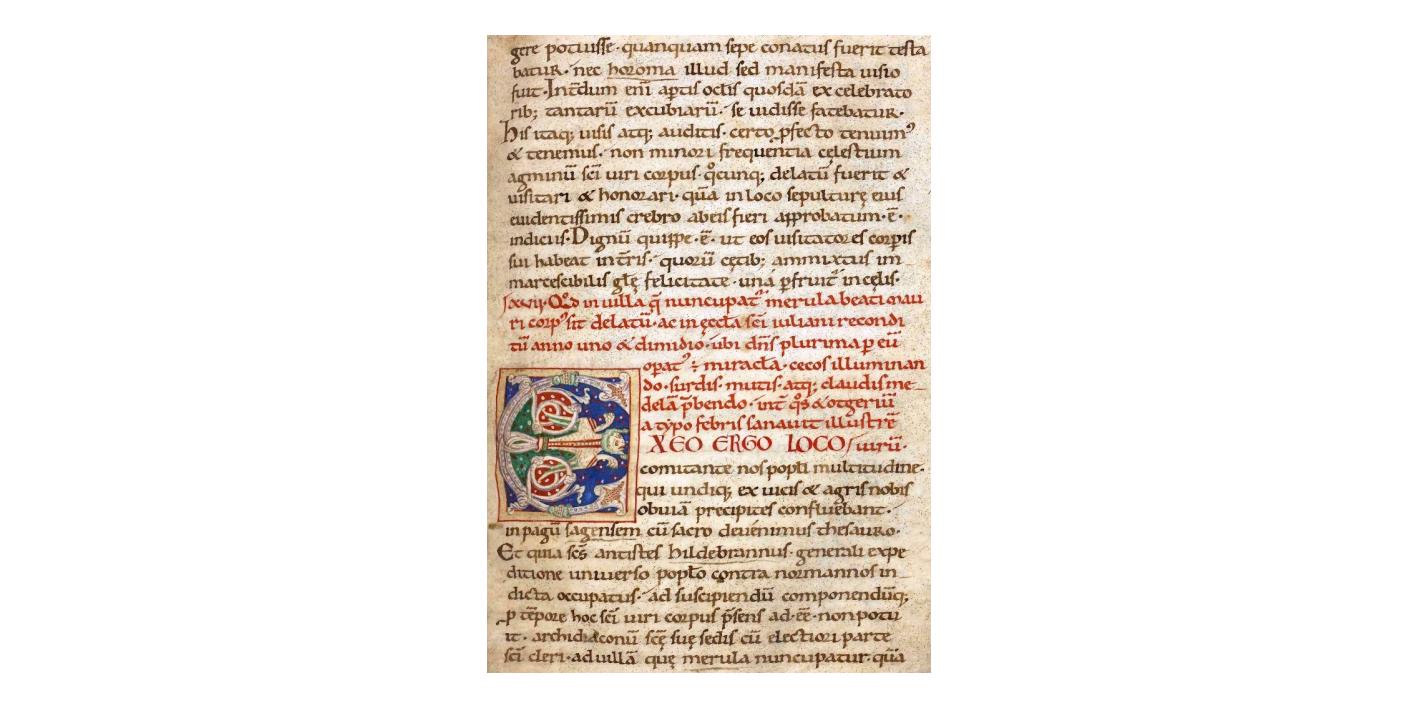 gere potuisse · quanquam sepe conatus fuerit testa
batur · nec horoma illud sed manifesta uisio
fuit · Int̄dum eni ap̄tis oclis quosdā ex celebrato
rib; tantarū excubiarū · se uidisse fatebatur ·
his itaq; uisis atq; auditis · certo ꝓfecto tenuim᾿
& tenemus · non minori frequentia cęlestium
agminū sc̄i uiri corpus · q̊cunq; delatū fuerit &
uisitari & honorari · quā in loco sepulturę eius
euidentissimis crebro ab eis fieri approbatum · ē ·
indiciis · Dignū quippe · ē · ut eos uisitatores corꝑis
sui habeat in t̄ris · quorū cętib; ammixtus im
marcescibilis gl̄ę felicitate · una ꝑfruit᾿ in cęlis ·
xxvij · Qd̄ in uilla q̄ nuncupat᾿ merula beati mau
ri corp᾿ sit delatū · ac in ęccl̄a sc̄i iuliani recondi
tū anno uno & dimidio · ubi dn̄s plurima ꝑ eū
oꝑat᾿ ÷ miracl̄a · cecos illuminan
do · surdis · mutis · atq; claudis me
delā p̄bendo · int̄ q̊s & otgeriū
a typo febris sanauit illustrē
EXEO ERGO LOCO / uirū ·
comitante nos popl̄i multitudine ·
qui undiq; ex uicis & agris nobis
obuiā precipites confluebant ·
in pagū sagensem cū sacro deuenimus thesauro ·
Et quia sc̄s antistes hildebrannus · generali expe
ditione uniuerso popl̄o contra normannos in
dicta occupatus · ad suscipiendū componendūq;
ꝑ tēpore hoc sc̄i uiri corpus p̄sens adeē · non potu
it · archidiaconū sc̄ę suę sedis cū electiori parte
sc̄i cleri · ad uillā quę merula nuncupatur · quā